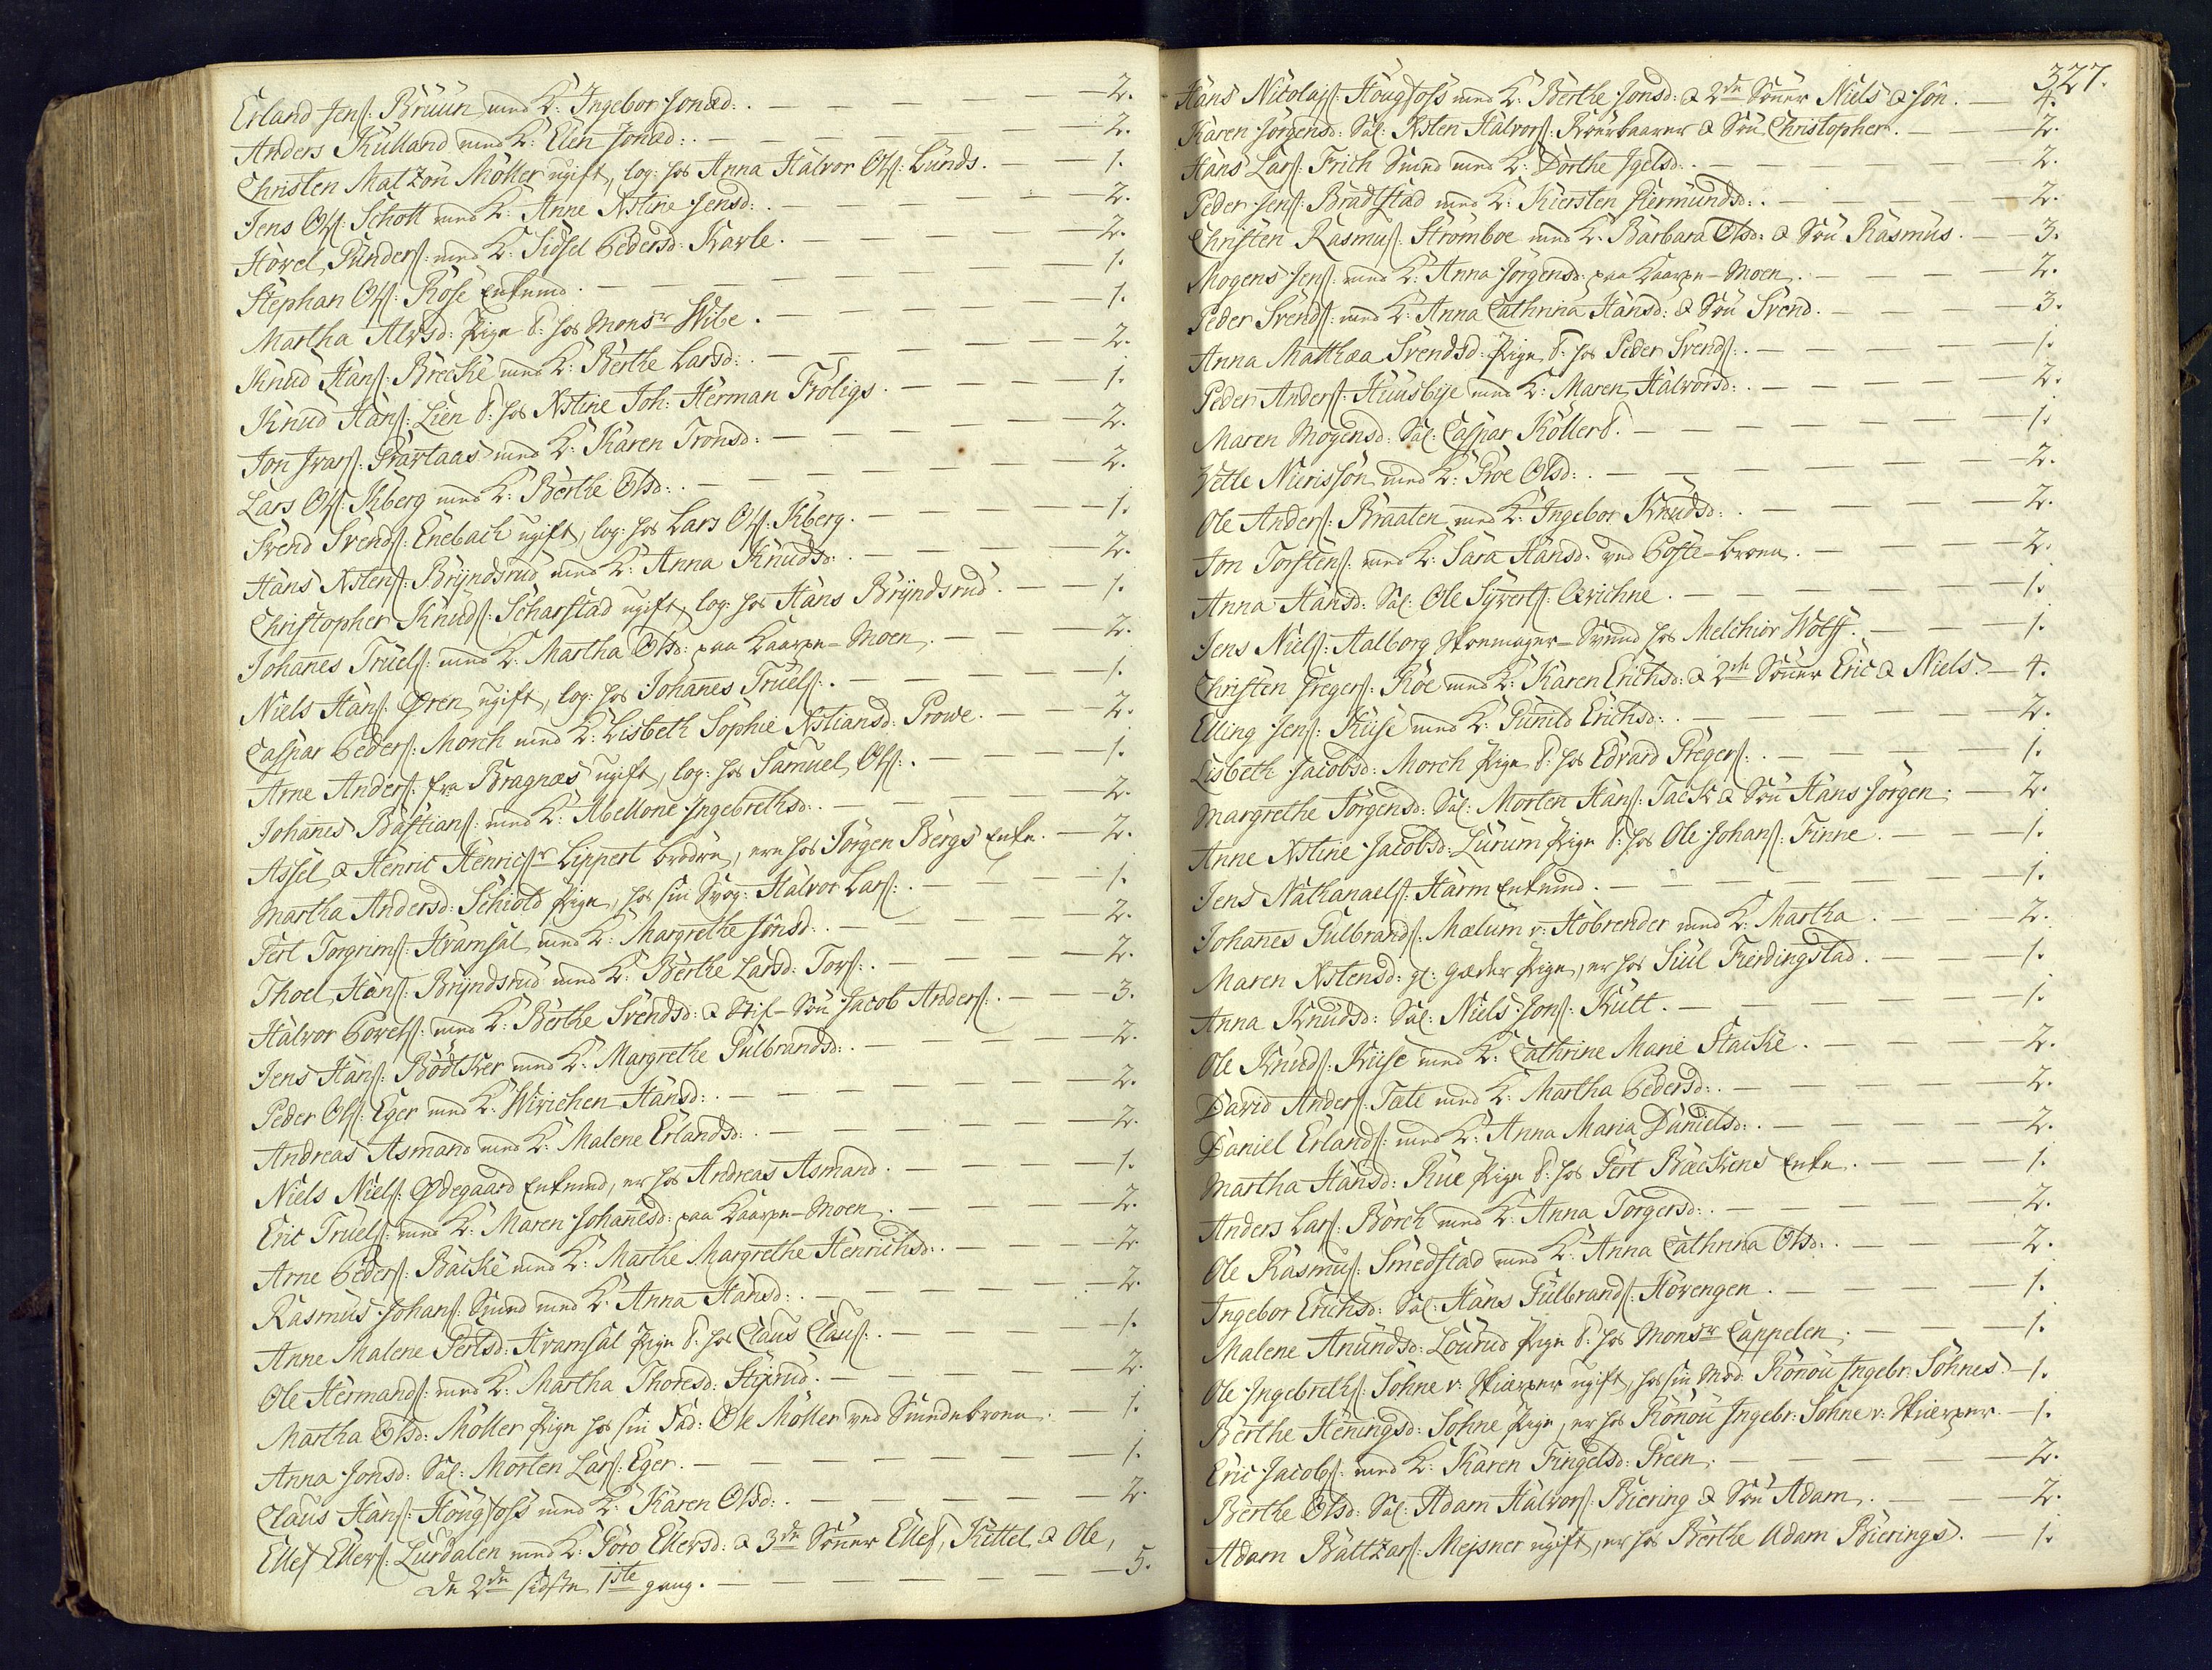 Erland Jens: Bruun med K: Ingebor Jonsd: . — 2.
Anders Kulland med K: Elen Jonsd: . — 2.
Christen Matzon Möller ugift, log: hos Anna Halvor Ols: Lunds. — 1.
Jens Ols: Schott med K: Anne Xstine Jensd: . — 2.
Hovel Gunders: med K: Sidsel Pedersd: Karle. — 2.
Stephan Ols: Rose Enkemd. — 1.
Martha Alvsd: Pige T: hos Monsr Wibe. — 1.
Knud Hans: Brecke med K: Berthe Larsd: . — 2.
Knud Hans: Lien T: hos Xstine Joh: Herman Fröligs. — 1.
Jon Ivars: Gravlaas med K: Karen Tronsd: — 2.
Lars Ols: Kiberg med K: Berthe Olsd: . — 2.
Svend Svends: Enebach ugift, log: hos Lars Ols: Kiberg. — 1.
Hans Xstens: Bryndsrud med K: Anna Knudsd: . — 2.
Christopher Knuds: Scharstad ugift, log: hos Hans Bryndsrud. — 1.
Johanes Truels: med K: Martha Olsd: paa Kaarpe-Moen. — 2.
Niels Hans: Øren ugift, log: hos Johanes Truels: . — 1.
Caspar Peders: Morch med K: Lisbeth Sophie Xstiansd: Prowe. — 2.
Arne Anders: fra Bragnæs ugift, log: hos Samuel Ols: . — 1.
Johanes Bastians: med K: Abellone Ingebrethsd: . — 2.
Assel & Henric Henricsr Lippert brödre, ere hos Jörgen Bergs Enke. — 2.
Martha Andersd: Schiold Pige, hos sin Svog: Halvor Lars: . — 1.
Gert Torgrims: Hvamsal med K: Margrethe Jonsd: . — 2.
Thoel Hans: Bryndsrud med K: Berthe Larsd: Tors: . — 2.
Halvor Povels: med K: Berthe Svendsd: & Stif-Sön Jacob Anders: . — 3.
Jens Hans: Bödtker med K: Margrethe Gulbrandsd: . — 2.
Peder Ols: Eger med K: Wirichen Hansd: . — 2.
Andreas Asmand med K: Malene Erlandsd: . — 2.
Niels Niels: Ødegaard Enkemd, er hos Andreas Asmand. — 1.
Eric Truels: med K: Maren Johanesd: paa Kaarpe-Moen. — 2.
Arne Peders: Backe med K: Marthe Margrethe Henrichsd: . — 2.
Rasmus Johans: Smed med K: Anna Hansd: . — 2.
Anne Malene Gertsd: Hvamsal Pige T: hos Claus Claus: . — 1.
Ole Hermands: med K: Martha Thoresd: Styrud. — 2.
Martha Olsd: Möller Pige hos sin Fad: Ole Möller ved Smedebroen. — 1.
Anna Jonsd: Sal: Morten Lars: Eger. — 1.
Claus Hans: Hougfoss med K: Karen Olsd: . — 2.
Ellef Ellevs: Lurdalen med K: Goro Ellevsd: & 3de Sönner Ellef, Kittel & Ole,
de 2de sidste 1ste gang. — 5.
327.
Hans Nicolajs: Hougfoss med K: Berthe Jonsd: & 2de Sönner Niels & Jon. — 4.
Karen Jörgensd: Sal: Xsten Halvors: & Sön Christopher. — 2.
Hans Lars: Frich Smed med K: Dorthe Igelsd: . — 2.
Peder Jens: Bradstad med K: Kiersten Germundsd: . — 2.
Christen Rasmus: Stromboe med K: Barbara Olsd: & Sön Rasmus. — 3.
Mogens Jens: med K: Anna Jörgensd: paa Kaarpe-Moen. — 2.
Peder Svends: med K: Anna Cathrina Hansd: & Sön Svend. — 3.
Anna Matthæa Svendsd: Pige T: hos Peder Svends: . — 1.
Peder Anders: Huusbye med K: Maren Halvorsd: . — 2.
Maren Mogensd: Sal: Caspar Kollerd. — 1.
Vetle Nierisson med K: Groe Olsd: . — 2.
Ole Anders: Braaten med K: Ingebor Knudsd: . — 2.
Jon Torstens: med K: Sara Hansd: ved Poste-broen. — 2.
Anna Hansd: Sal: Ole Syverts: Qvichne. — 1.
Jens Niels: Aalborg Skoemager-Svend hos Melchior Wolff. — 1.
Christen Gregers: Roe med K: Karen Erichsd: & 2de Sönner Eric & Niels. — 4.
Elling Jens: Kiise med K: Gunild Erichsd: . — 2.
Lisbeth Jacobsd: Morch Pige T: hos Edvard Gregers: . — 1.
Margrethe Jörgensd: Sal: Morten Hans: Tack & Sön Hans Jörgen. — 2.
Anne Xstine Jacobsd: Lurum Pige T: hos Ole Johans: Finne. — 1.
Jens Nathanaels: Harm Enkemd. — 1.
Johanes Gulbrands: Mælum v: Hobrender med K: Martha. — 2.
Maren Xstensd: gl: Pige, er hos Siul Fierdingstad. — 1.
Anna Knudsd: Sal: Niels Jons: Kult. — 1.
Ole Knuds: Kiise med K: Cathrine Marie Stacke. — 2.
David Anders: Tate med K: Martha Pedersd: . — 2.
Daniel Erlands: med K: Anna Maria Danielsd: . — 2.
Martha Hansd: Rue Pige T: hos Gert Backens Enke. — 1.
Anders Lars: Borch med K: Anna Torgersd: . — 2.
Ole Rasmus: Smedstad med K: Anna Cathrina Olsd: . — 2.
Ingebor Erichsd: Sal: Hans Gulbrands: Hovengen. — 1.
Malene Anundsd: Lourud Pige T: hos Monsr Cappelen. — 1.
Ole Ingebreths: Sohne v: Skierper ugift, hos sin Mod: Ronou Ingebr: Sohnes. — 1.
Berthe Heningsd: Sohne Pige, er hos Ronou Ingebr: Sohne v: Skierper. — 1.
Eric Jacobs: med K: Karen Fingelsd: Green. — 2.
Berthe Olsd: Sal: Adam Halvors: Biering & Sön Adam. — 2.
Adam Baltzars: Mejsner ugift, er hos Berthe Adam Bierings. — 1.